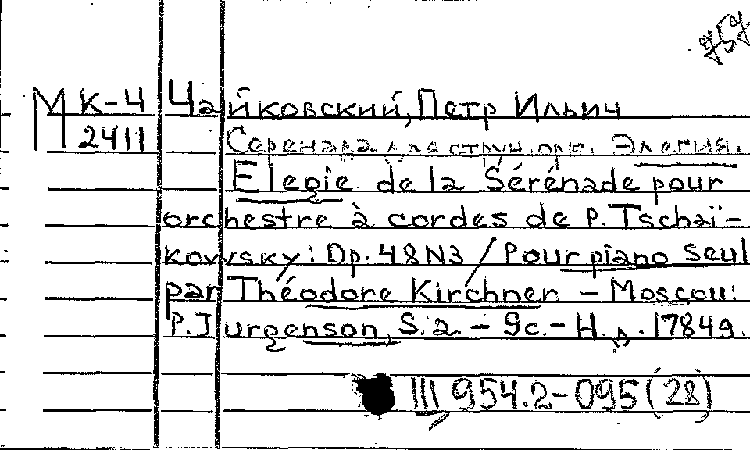 757
М К-4 Чайковский, Петр Ильич
2411 Серенада для струн. орк. Элегия.
Elegie de la Sérénade pour
orchestre à cordes de P. Tschaï-
kowsky: Op. 48 N3 / Pour piano seul
par Théodore Kirchner – Moscou:
P. Jurgenson, S.a. – 9c. – Н.д. 17849.
III 954.2-095(28)